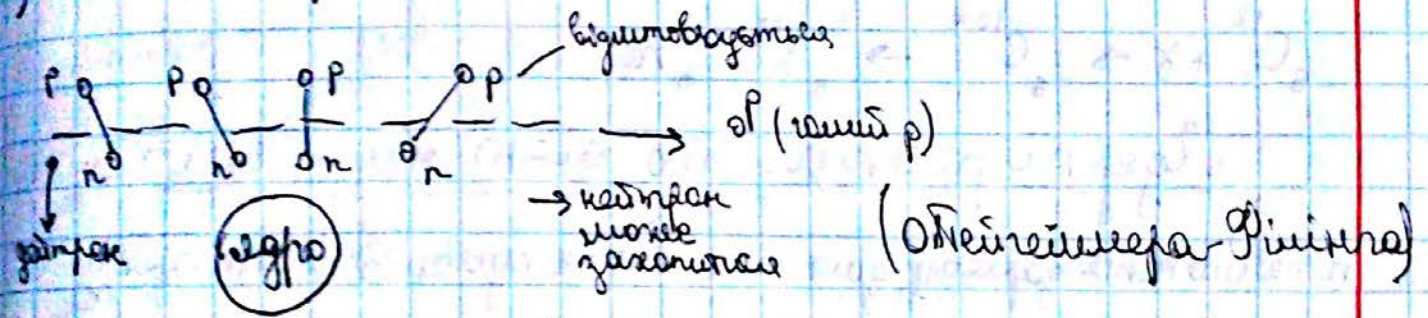 відштовхується
p p p p
p (голий p)
n n n n
→ нейтрон
може
захопитися
дейтрон
ядро
(Опенгеймера-Філіпса)